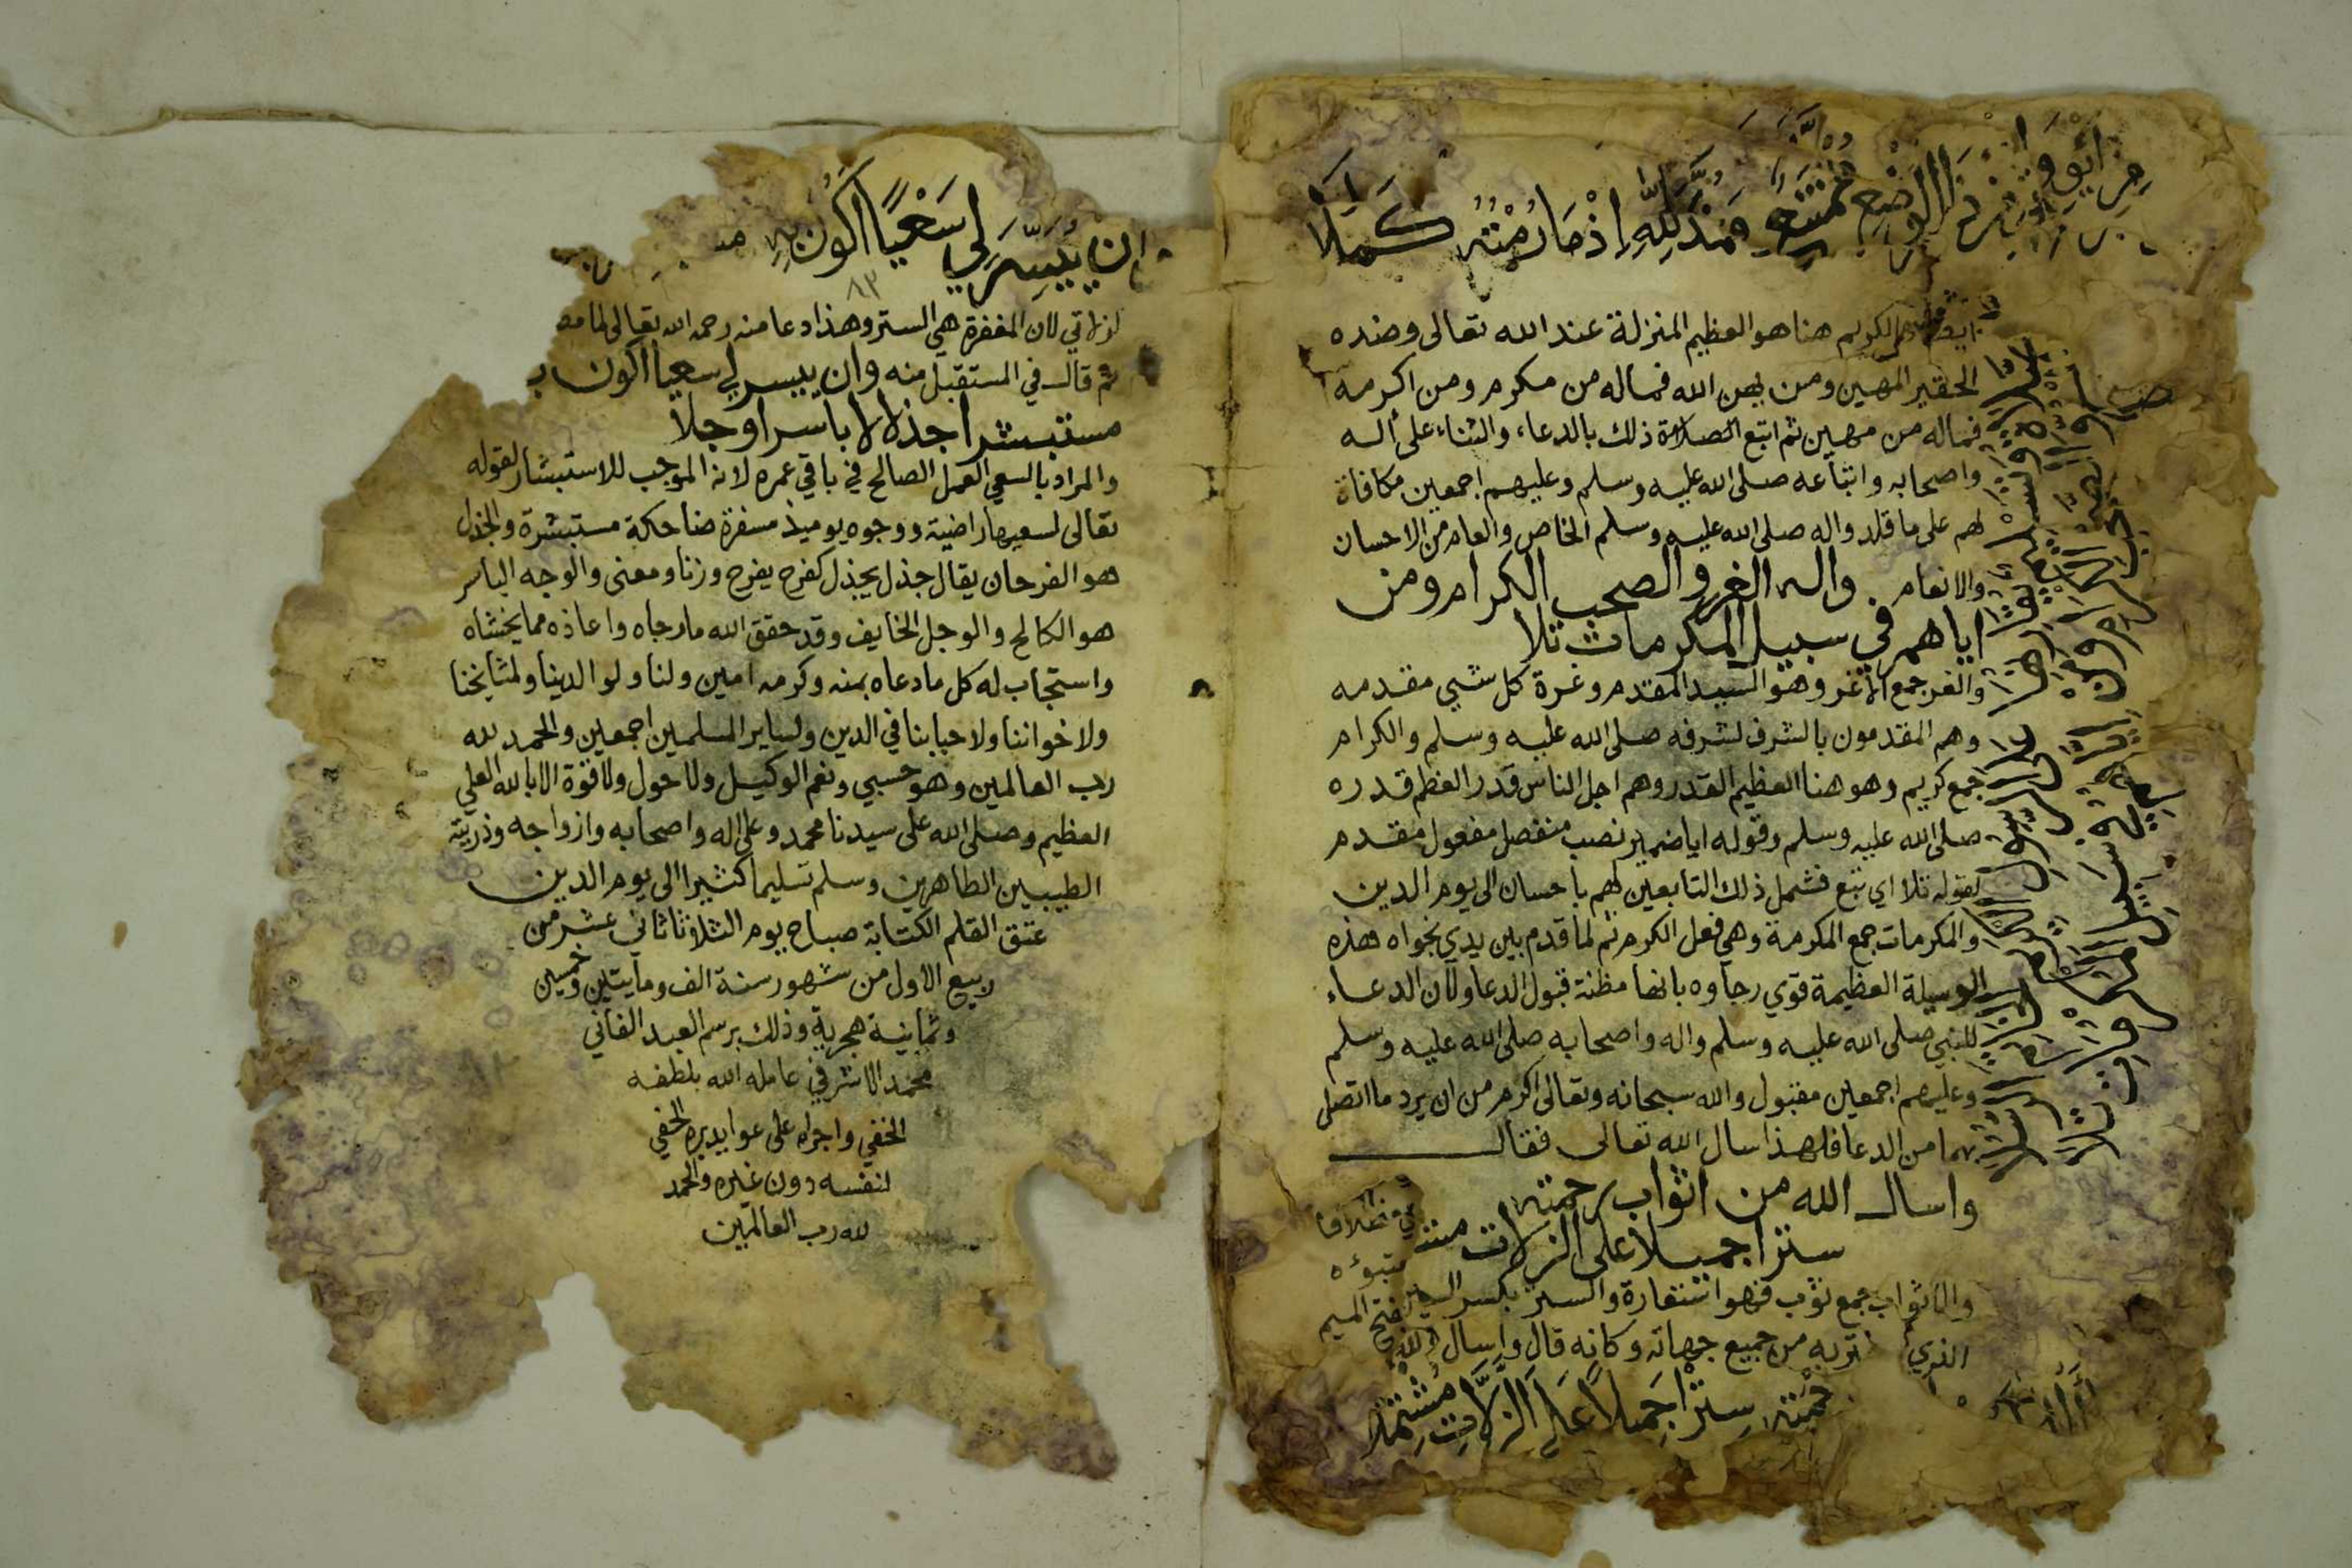 وقد لله إذ ما رمته كملا
الكريم هنا هو العظيم المنزلة عند الله تعالى وضده
الحقير المهين ومن يهن الله فماله من مكرم ومن اكرمه
فماله من مهين ثم اتبع الصلاة ذلك بالدعاء والثناء على اله
واصحابه واتباعه صلى الله عليه وسلم وعليهم اجمعين مكافاة
لهم على ما قلد واله صلى الله عليه وسلم الخاص والعام من الاحسان
والانعام واله الغر والصحب الكرام ومن
اياهم في سبيل المكرمات تلا
والغر جمع الأغر وهو السيد المقدم وغرة كل شيي مقدمه
وهم المقدمون بالشرف لشرفه صلى الله عليه وسلم والكرام
جمع كريم وهو هنا العظيم القدر وهم اجل الناس قدر العظم قدره
صلى الله عليه وسلم وقوله ايا ضمير نصب منفصل مفعول مقدم
لقوله تلا اي تبع فشمل ذلك التابعين لهم باحسان الى يوم الدين
والمكرمات جمع المكرمة وهي فعل الكرم ثم لما قدم بين يدي نجواه هذه
الوسيلة العظيمة قوي رجاوه بانها مظنة قبول الدعا ولان الدعاء
للنبي صلى الله عليه وسلم واله واصحابه صلى الله عليه وسلم
وعليهم اجمعين مقبول والله سبحانه وتعالى اكرم من ان يرد ما اتصل
بهما من الدعا فلهذا سال الله تعالى فقال
واسال الله من اثواب رحمته
سترا جميلا على الزلات
والاثواب جمع ثوب فهو استعارة والستر بكسر السين
الذي من جميع جهاته وكانه قال واسال الله
سِتْرًا جَمِيلًا عَلَى الزَّلَّاتِ مُشْتَمِلًا
وان يُيَسِّرَ لِي سَعْيًا اَكُونُ بِهِ
لزلاتي لان المغفرة هي الستر وهذا دعا منه رحمه الله تعالى لما
ثم قال في المستقبل منه وان ييسر لي سعيا اكون ب
مستبشرا جذلا لا باسرا وجلا
والمراد بالسعي العمل الصالح في باقي عمره لانه الموجب للاستبشار لقوله
تعالى لسعيها راضية ووجوه يوميذ مسفرة ضاحكة مستبشرة والجذل
هو الفرحان يقال جذل يجذل كفرح يفرح وزنا ومعنى والوجه الباسر
هو الكالح والوجل الخايف وقد حقق الله ما رجاه واعاذه مما يخشاه
واستجاب له كل ما دعاه بمنه وكرمه امين ولنا ولوالدينا ولمشايخنا
ولاخواننا ولاحبابنا في الدين ولساير المسلمين اجمعين والحمد لله
رب العالمين وهو حسبي ونعم الوكيل ولا حول ولا قوة الا بالله العلي
العظيم وصلى الله على سيدنا محمد وعلى اله واصحابه وازواجه وذريته
الطيبين الطاهرين وسلم تسليما كثيرا الى يوم الدين
عتق القلم الكتابة صباح يوم الثلاثا ثاني عشر من
ربيع الاول من شهور سنة الف ومايتين وخمسين
وثمانية هجرية وذلك برسم العبد الفاني
محمد الاشرفي عامله الله بلطفه
الخفي واجراه على عوايد بره الحفي
لنفسه دون غيره والحمد
لله رب العالمين